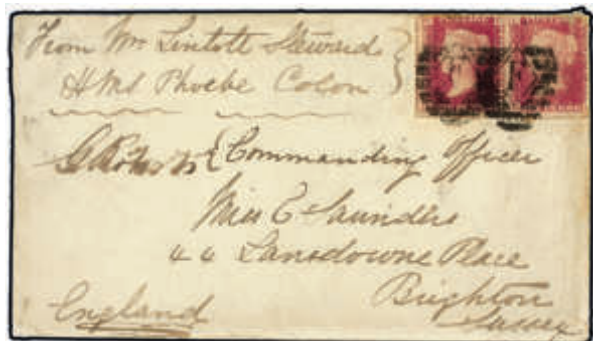 From Wm Lintott Steward
HMS Phoebe Colon
Commanding Officer
Miss E Saunders
44 Lansdowne Place
Brighton
England Sussex